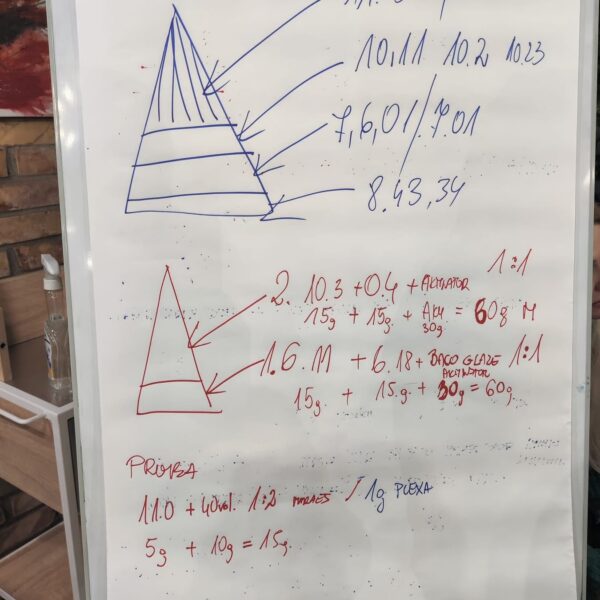 10,11 10.2 10.23
7,6,01/7.01
8.43,34
1:1
2. 10.3 + 0.4 + AKTIVATOR
15g + 15g. + AKY 30g. = 60g M
1.6.11 + 6.18 + BACO GLAZE AKTIVATOR 1:1
15g. + 15.g. + 30g = 60g.
PROBA
11.0 + 40vol. 1:2 / 1g PLEXA
5g + 10g = 15g.